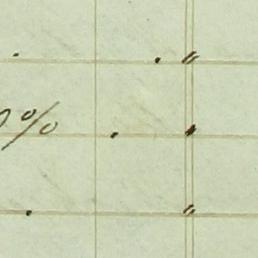 . . "
0% . "
. "